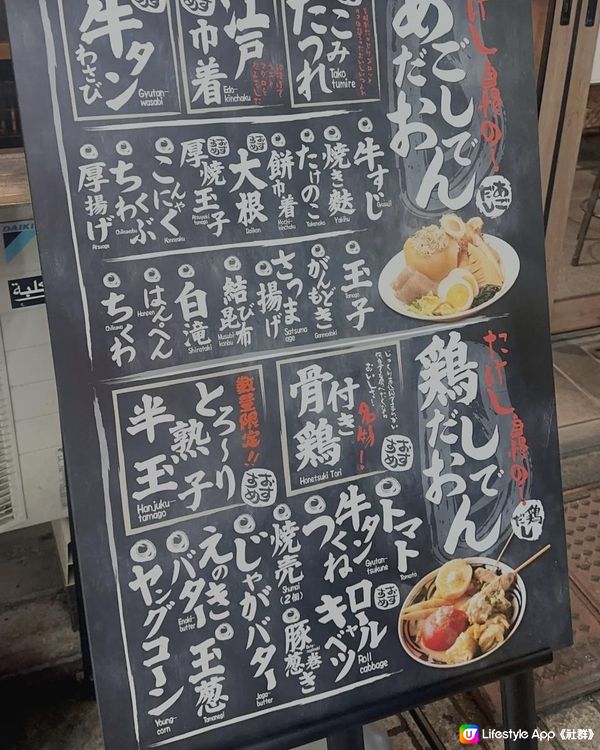 あごだし
おでん
あご
だし
たこみ
たつれ
Tako
tumire
江戸
巾着
Edo-
kinchaku
牛タン
わさび
Gyutan-
wasabi
牛すじ
Gyusuji
焼き麩
Yakihu
たけのこ
Takenoko
餅巾着
Mochi-
kinchaku
大根
おすすめ
Daikon
厚焼玉子
おすすめ
Atsuyaki
tamago
こんにゃく
Konnyaku
ちくわぶ
Chikuwabu
厚揚げ
Atsuage
玉子
Tamago
がんもどき
Ganmodoki
さつま揚げ
Satsuma
age
結び昆布
Musubi
konbu
白滝
Shirataki
はんぺん
Hanpen
ちくわ
Chikuwa
鶏だし
おでん
鶏だし
骨付き鶏
名物!
おすすめ
Honetsuki Tori
とろ〜り
半熟玉子
数量限定!!
おすすめ
Hanjuku-
tamago
トマト
Tomato
牛タン
つくね
Gyutan-
tsukune
焼売
Shumai
(2個)
じゃがバター
Jaga-
butter
えのき
バター
Enoki-
butter
ヤングコーン
Young-
corn
ロール
キャベツ
おすすめ
Roll
cabbage
豚葱巻き
玉葱
Tamanegi
DAIKIN
Lifestyle App《社群》